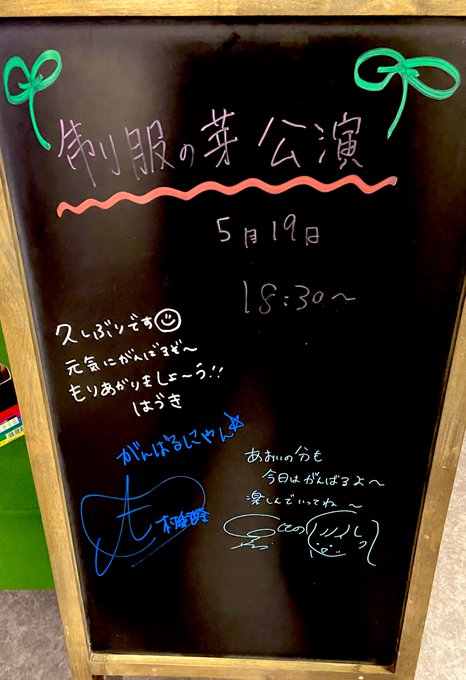 制服の芽 公演
5月19日
18:30〜
久しぶりです
元気にがんばるぞ〜
もりあがりましょ〜う!!
はづき
がんばるにゃん☆
あおいの分も
今日はがんばるよ〜
楽しんでいってね〜